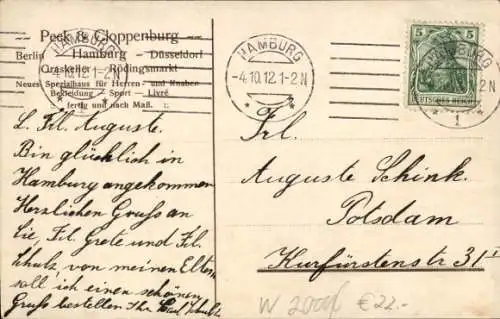 Peek & Cloppenburg
Berlin Hamburg - Düsseldorf
Graskeller - Rödingsmarkt
Neues Spezialhaus für Herren- und Knaben-
Bekleidung - Sport - Livré
fertig und nach Maß.
HAMBURG
-4.10.12.1-2N
* 1 *
HAMBURG
-4.10.12.1-2N
* *
5 5
DEUTSCHES REICH
HAMBURG
2N
1
L. Frl. Auguste.
Bin glücklich in
Hamburg angekommen
Herzlichen Gruss an
Sie, Frl. Grete und Frl.
Schulz, von meinen Eltern
soll ich einen schönen
Gruss bestellen. Ihr
Frl.
Auguste Schink.
Potsdam
Kurfürstenstr. 31 I
€22.-